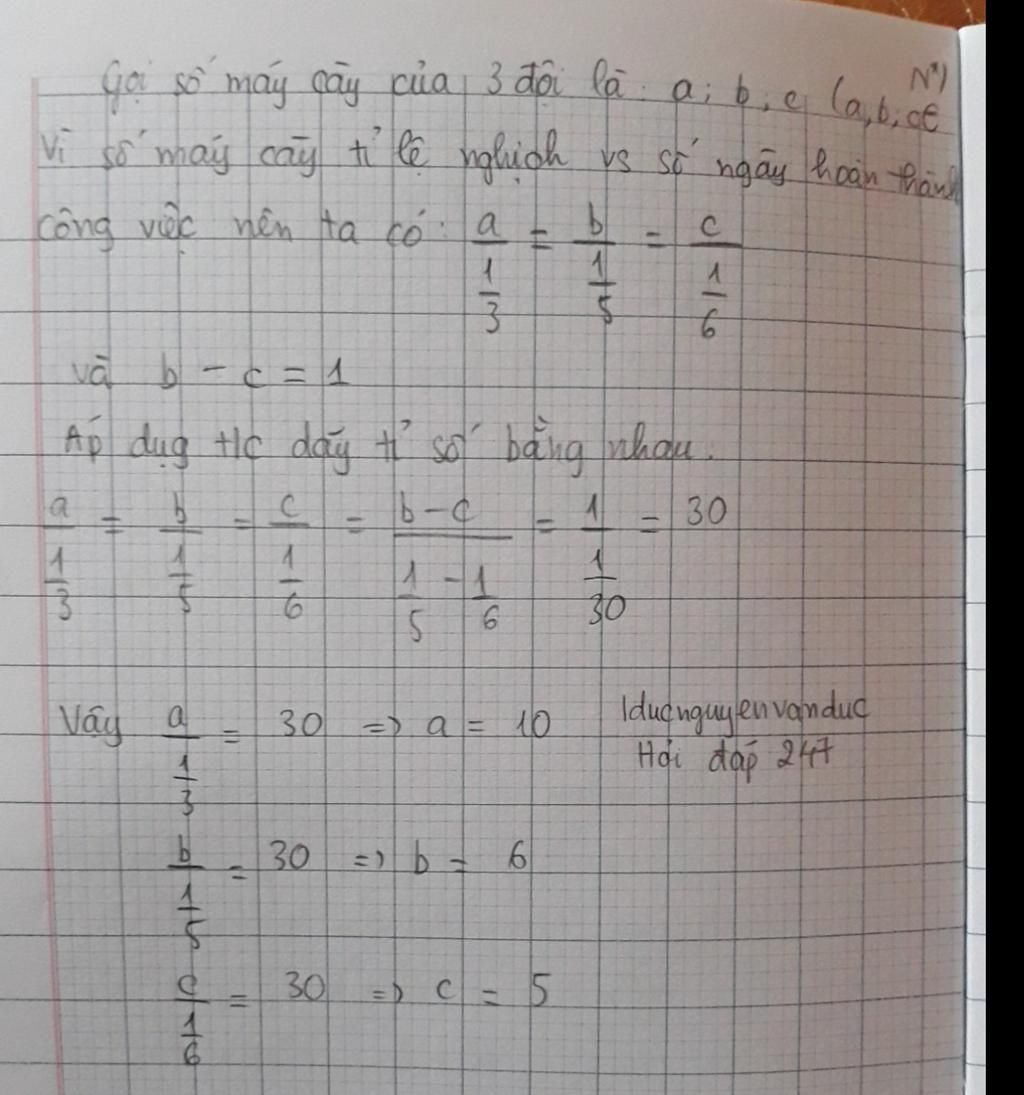 Gọi số máy cày của 3 đội là: a; b; c (a, b, c ∈ N*)
Vì số máy cày tỉ lệ nghịch vs số ngày hoàn thành
công việc nên ta có: a/(1/3) = b/(1/5) = c/(1/6)
và b - c = 1
Áp dụg t/c dãy tỉ số bằng nhau.
a/(1/3) = b/(1/5) = c/(1/6) = (b - c)/(1/5 - 1/6) = 1/(1/30) = 30
Vậy a/(1/3) = 30 => a = 10
1ducnguyenvanduc
Hỏi đáp 247
b/(1/5) = 30 => b = 6
c/(1/6) = 30 => c = 5